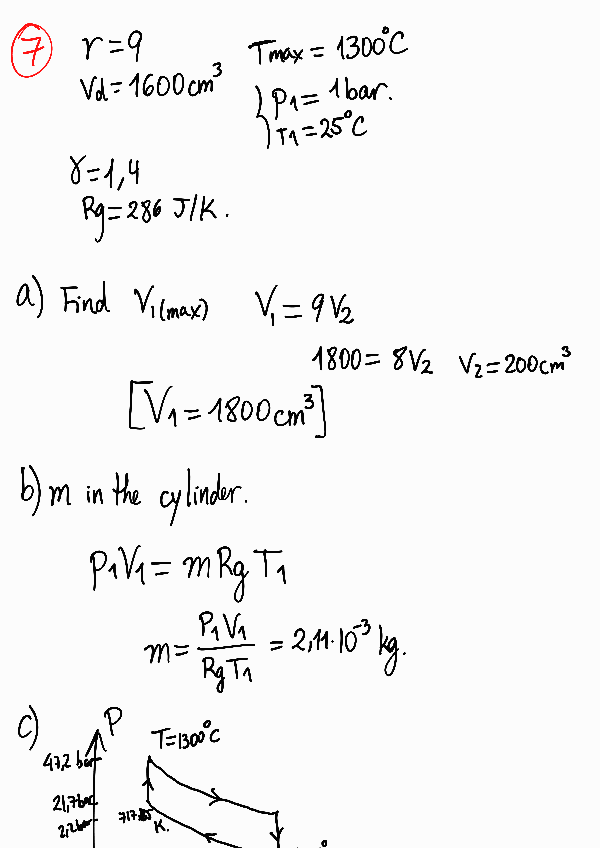 7 r=9 Tmax = 1300°C
Vd=1600cm³ P1= 1bar.
T1=25°C
γ=1,4
Rg=286 J/K.
a) Find V1(max) V1=9V2
1800= 8V2 V2=200cm³
[V1=1800cm³]
b) m in the cylinder.
P1V1= mRgT1
m= P1V1 / RgT1 = 2,11·10⁻³ kg.
c) P T=1300°C
47,2 bar
21,7bar
2,2bar K.